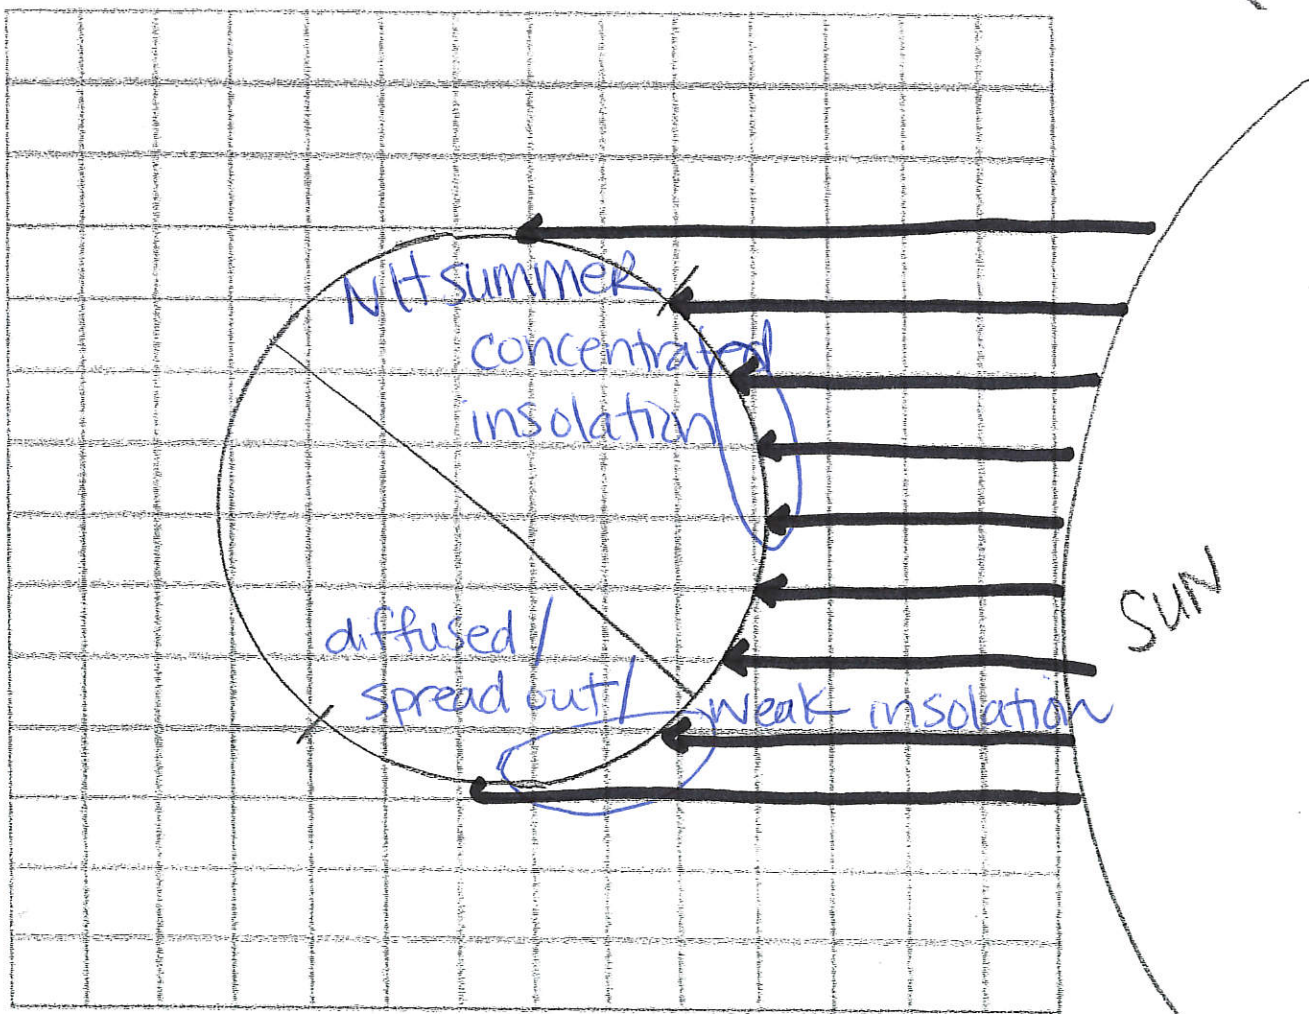 NH summer
concentrated
insolation
SUN
diffused/
spread out/ weak insolation